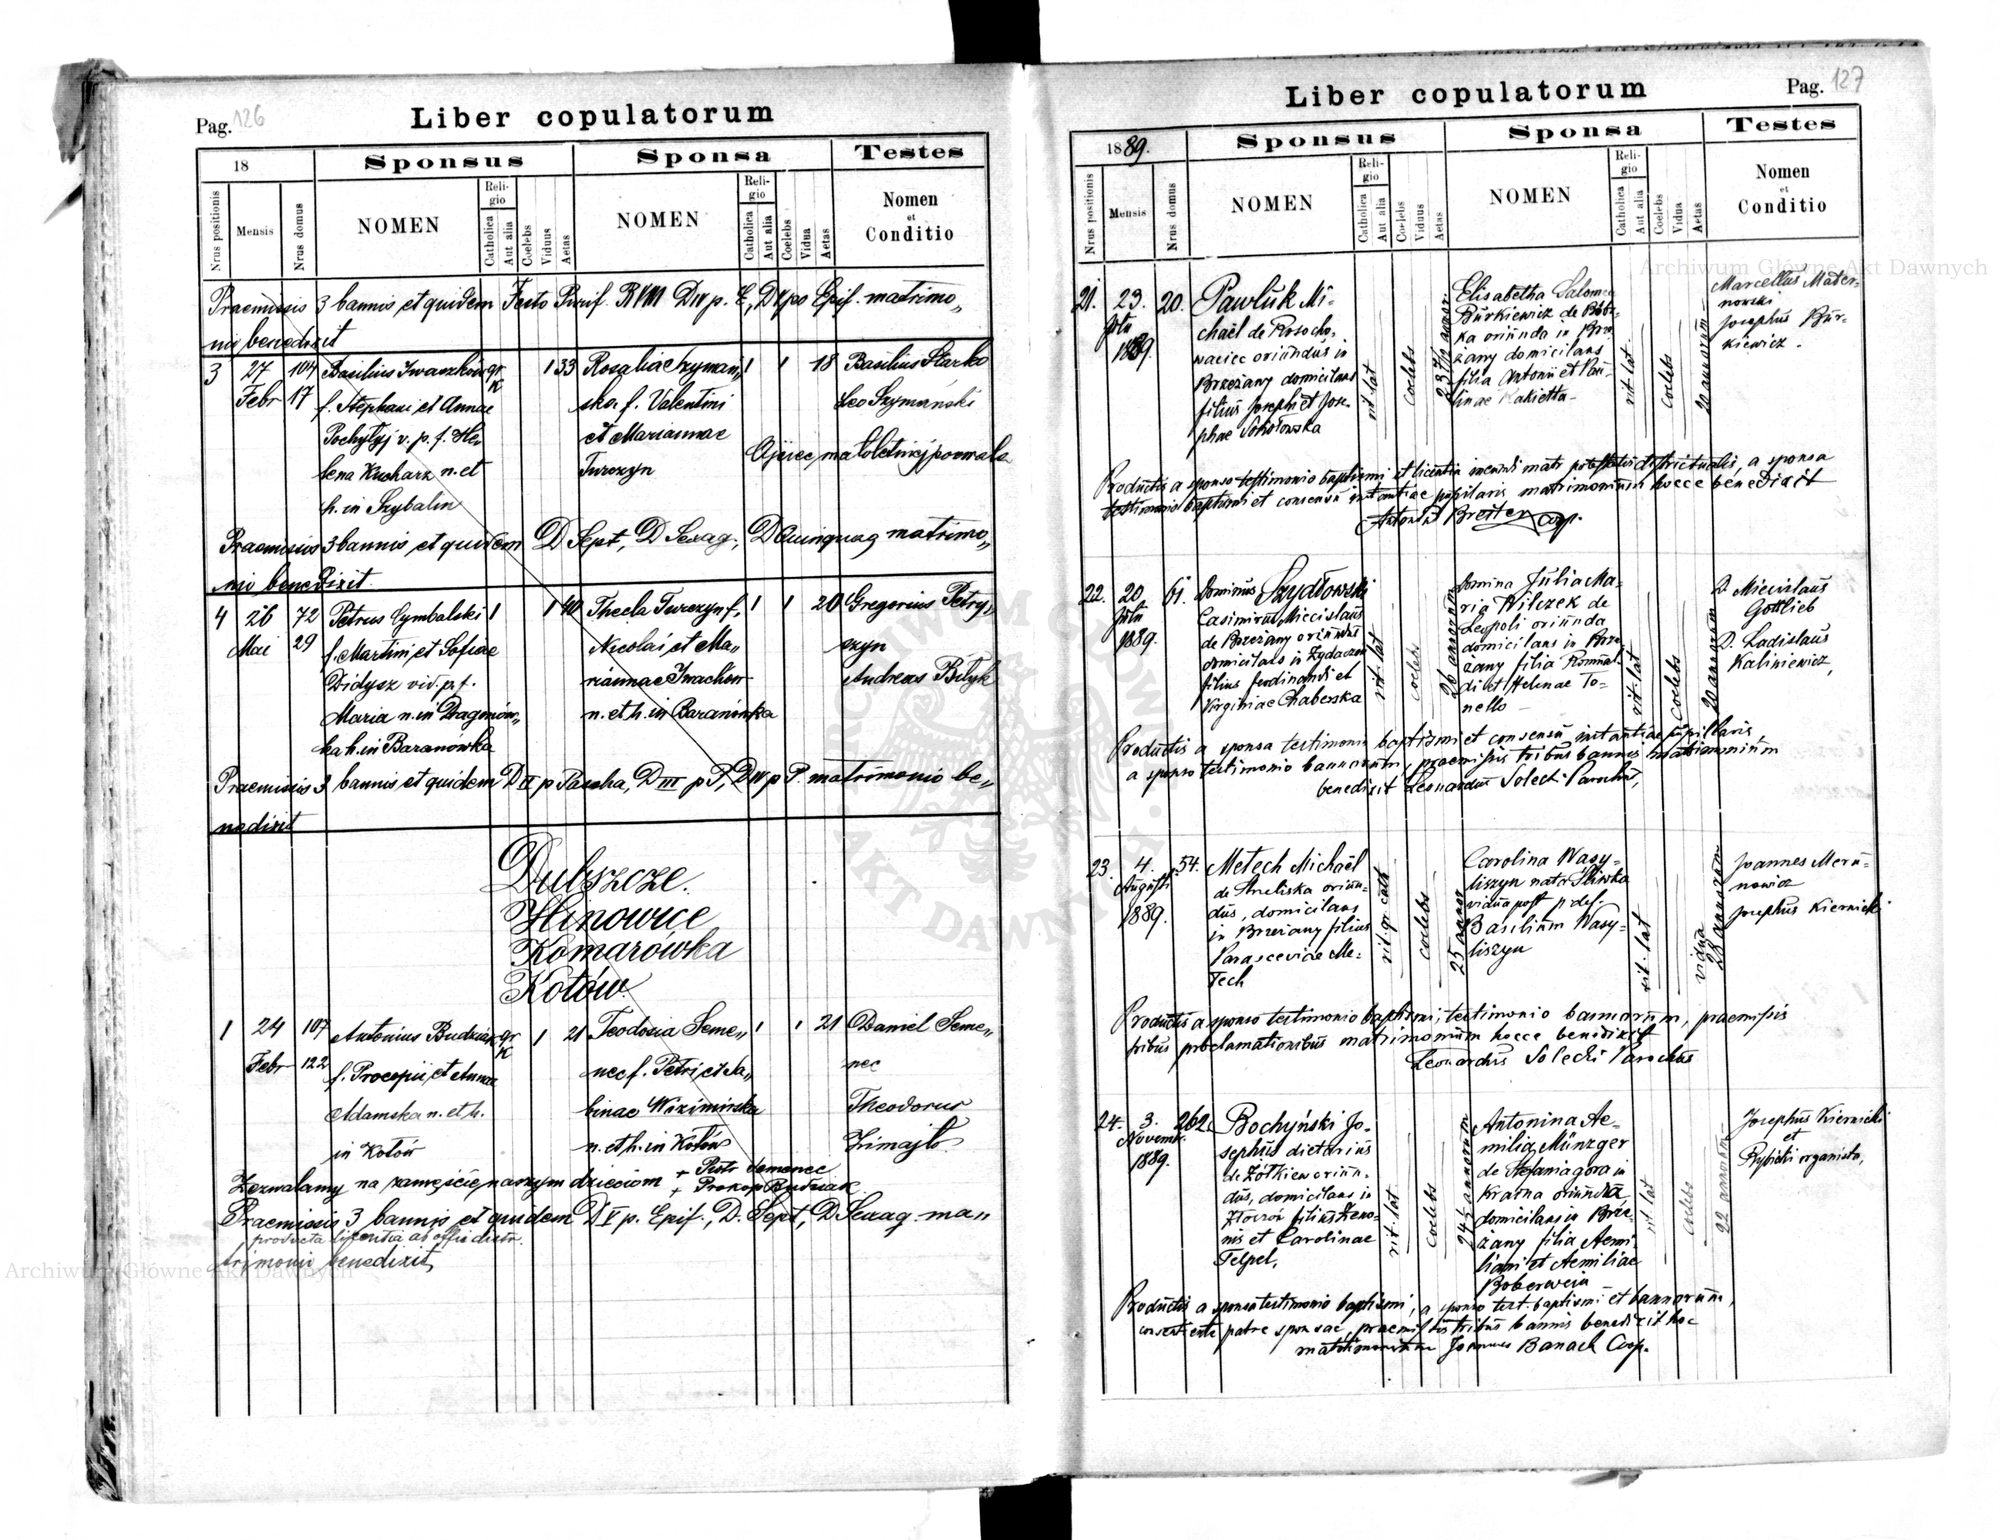 Pag. 126
Liber copulatorum
18
Sponsus
Sponsa
Testes
Nrus positionis
Mensis
Nrus domus
NOMEN
Religio
Catholica
Aut alia
Coelebs
Viduus
Aetas
NOMEN
Religio
Catholica
Aut alia
Coelebs
Vidua
Aetas
Nomen
et
Conditio
Praemissis 3 bannis et quidem Festo Purif. BVM D IV p. E, D V po Epif. matrimo„
nio benedixit
3 27 104 Basilius Iwaszków gr 1 33 Rosalia Szymań„ 1 1 18 Basilius Starko
Febr 17 f. Stephani et Annae K ska f. Valentini Leo Szymański
Pochytyj v. p. f. He„ et Mariannae
lena Kucharz n. et Turczyn Ojciec małoletniej pozwala
h. in Szybalin
Praemissis 3 bannis et quidem D Sept, D Sexag., D Quinquag matrimo„
nio benedixit
4 26 72 Petrus Cymbalski 1 1 40 Thecla Turczyn f. 1 1 20 Gregorius Petry„
Mai 29 f. Martini et Sofiae Nicolai et Ma„ szyn
Didysz vid. p. f. riannae Iwachów Andreas Bilyk
Maria n. in Dragonów„ n. et h. in Baranówka
ka h. in Baranówka
Praemissis 3 bannis et quidem D II p Pascha, D III p P, D IV p P. matrimonio be„
nedixit
Dubszcze.
Hinowice
Komarówka
Kotów.
1 24 107 Antonius Budziak gr 1 21 Teodozia Seme„ 1 1 21 Daniel Seme„
Febr 122 f. Procopii et Annae K nec f. Petri et Sa„ nec
Adamska n. et h. binae Wizimirska Theodorus
in Kotów n. et h. in Kotów Zrimajło
Zezwalamy na zamęście naszym dzieciom + Piotr Semenec
+ Prokop Budziak
Praemissis 3 bannis et quidem D V p. Epif., D. Sept, D Sexag. ma„
producta licentia ab offic distr.
trimonio benedixit
Pag. 127
Liber copulatorum
1889.
Sponsus
Sponsa
Testes
Nrus positionis
Mensis
Nrus domus
NOMEN
Religio
Catholica
Aut alia
Coelebs
Viduus
Aetas
NOMEN
Religio
Catholica
Aut alia
Coelebs
Vidua
Aetas
Nomen
et
Conditio
21. 23. 20. Pawluk Mi- Elisabetha Salomea Marcellus Mader-
Julii chaël de Rosocho- Burkiewicz de Bóbr- nowski
1889. waciec oriundus in ka oriunda in Bre- Josephus Bur-
Brzeżany domicilans żany domicilans kiewicz.
filius Josephi et Jose- filia Antonii et Pau-
phae Sokołowska linae Rakietta
rit. lat
coelebs
rit. lat
coelebs
20 annorum
Productis a sponso testimonio baptismi et licentia ineundi matr potestatis districtualis, a sponsa
testimonio baptismi et consensu instantiae pupilaris matrimonium hocce benedixit
Antonius Breiter Coop.
22. 20 61. Dominus Szydłowski Domina Julia Ma- D. Miecislaus
Julii Casimirus Miecislaus ria Wilczek de Gottlieb
1889. de Brzeżany oriundus Leopoli oriunda D. Ladislaus
domicilans in Żydaczów domicilans in Brze- Kaliniewicz,
filius Ferdinandi et żany filia Romual-
Virginiae Chaberska di et Helenae To-
nello
rit. lat
coelebs
26 annorum
rit. lat
coelebs
20 annorum
Productis a sponsa testimonio baptismi et consensu instantiae pupillaris,
a sponso testimonio bannorum, praemissis tribus bannis matrimonium
benedixit Leonardus Solecki Parochus,
23. 4. 54. Metech Michaël Carolina Wasy- Joannes Meru-
Augusti de Streliska oriun- liszyn nata Śliwka nowicz
1889. dus, domicilans vidua post p. def. Josephus Kiernicki
in Brzeżany filius Basilium Wasy-
Parasceviae Me- liszyn
tech
rit. gr. cath
coelebs
25 annor
rit. lat
vidua
28 annorum
Productis a sponso testimonio baptismi, testimonio bannorum, praemissis
tribus proclamationibus matrimonium hocce benedixit
Leonardus Solecki Parochus
24. 3. 262. Bochyński Jo- Antonina Ae- Josephus Kiernicki
Novembr. sephus dietarius milia Münzger et
1889. de Żółkiew oriun- de Stefaniagora in Rybicki organista,
dus, domicilans in Kraina oriunda
Złoczów filius Zeno- domicilans in Brze-
nis et Carolinae żany filia Aemi
Felpel, liani et Aemiliae
Boberwein
rit. lat
coelebs
24½ annorum
rit. lat
coelebs
22 annorum
Productis a sponsa testimonio baptismi, a sponso test. baptismi et bannorum,
consentiente patre sponsae, praemissis tribus bannis benedixit hoc
matrimonium Joannes Banach Coop.
Archiwum Główne Akt Dawnych
Archiwum Główne Akt Dawnych
ARCHIWUM GŁÓWNE AKT DAWNYCH